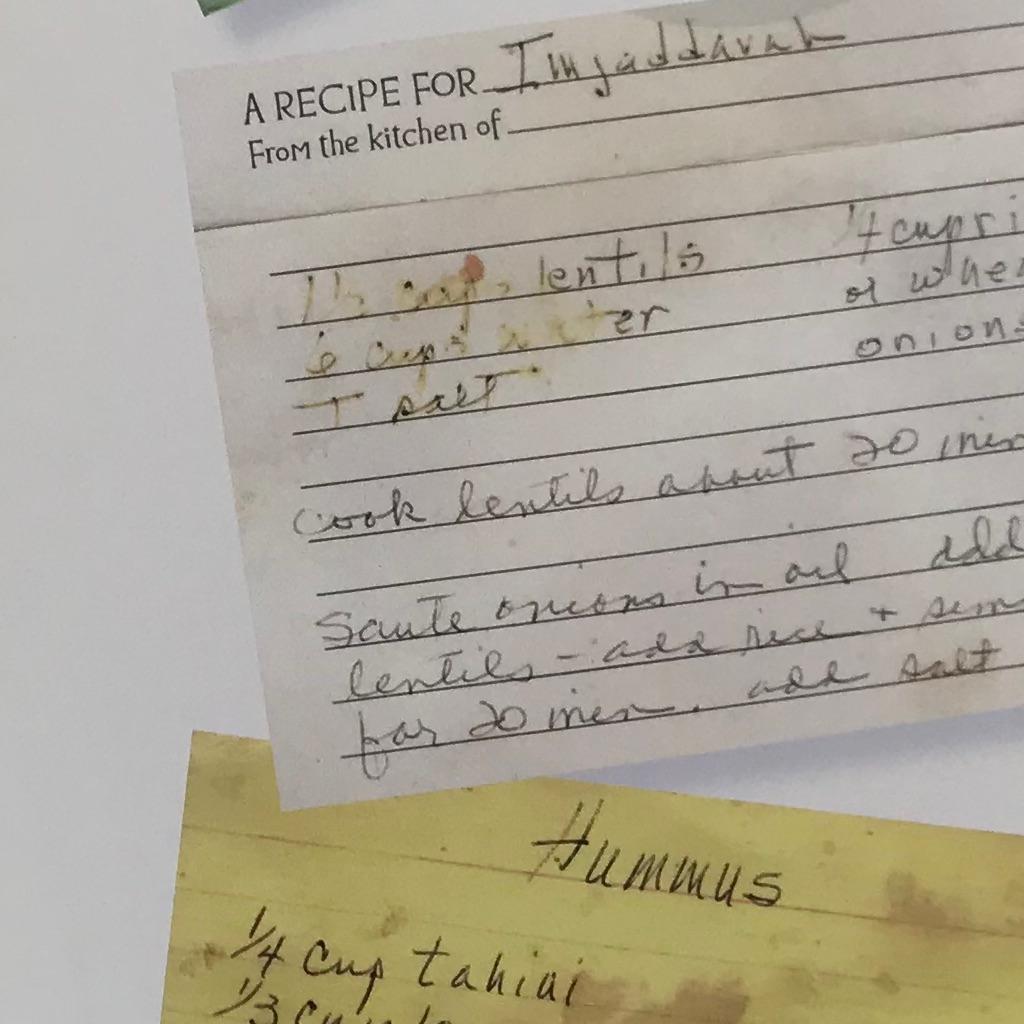 A RECIPE FOR Imjaddarah
From the kitchen of
1½ cups lentils
6 cups water
T salt
1/4 cup ri
or whe
onions
Cook lentils about 20 min
Saute onions in oil add
lentils - add rice + sim
for 20 min. add salt
Hummus
1/4 cup tahini
1/3 cup